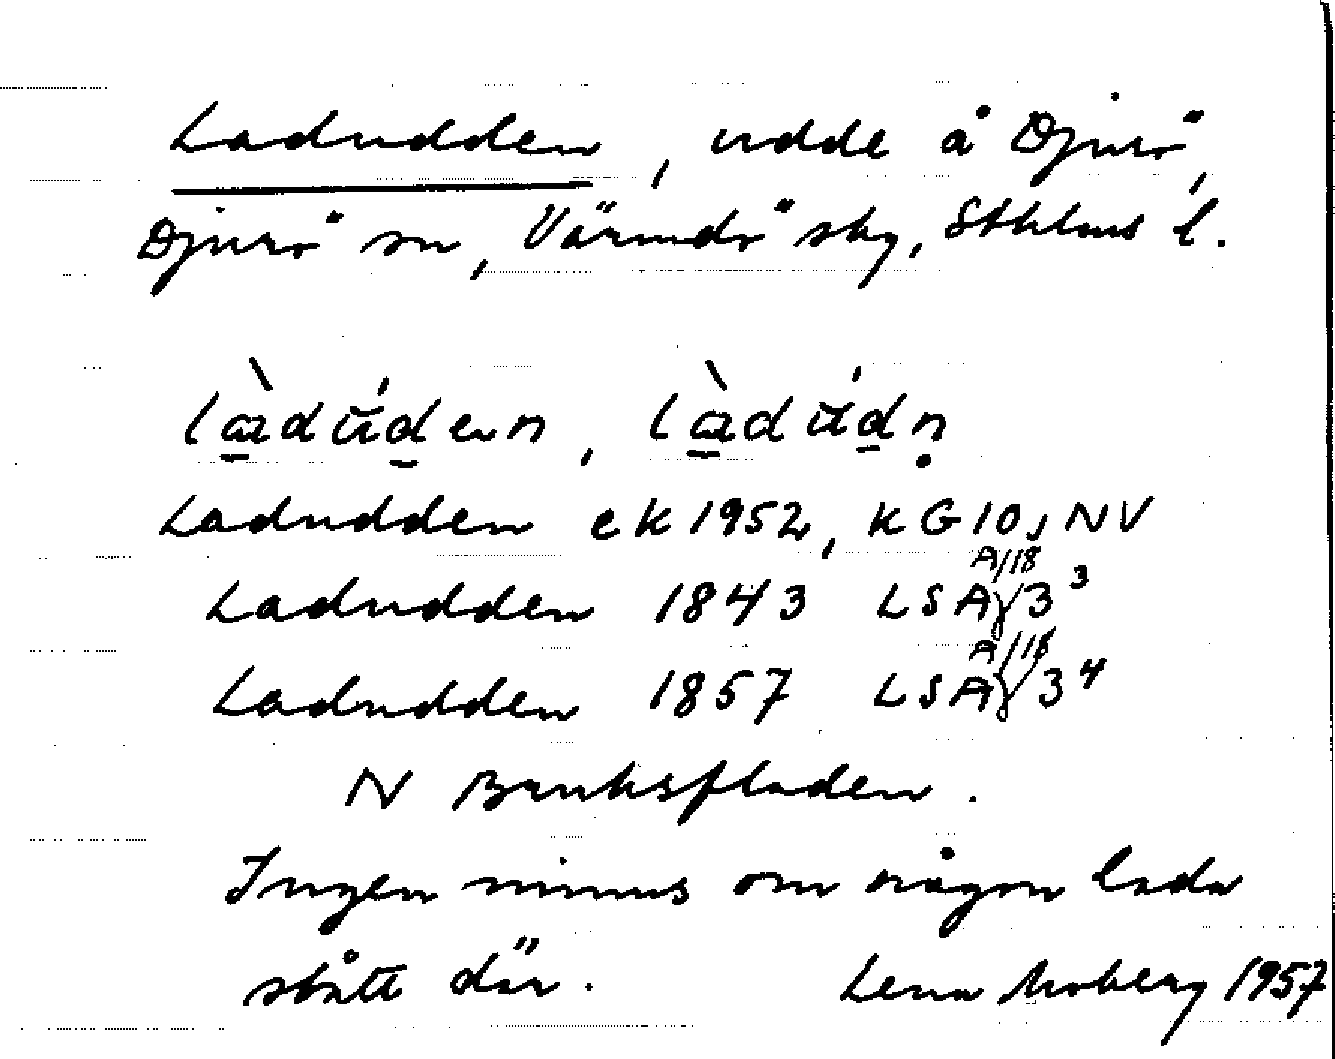 Ladudden, udde å Djurö,
Djurö sn, Värmdö sky, Sthlms l.
Ladudden ek 1952, KG 10j NV
A/18
Ladudden 1843 LSA 3³
A/18
Ladudden 1857 LSA 3⁴
N Bruksfladen.
Ingen minns om någon lada
stått där. Lena Moberg 1957